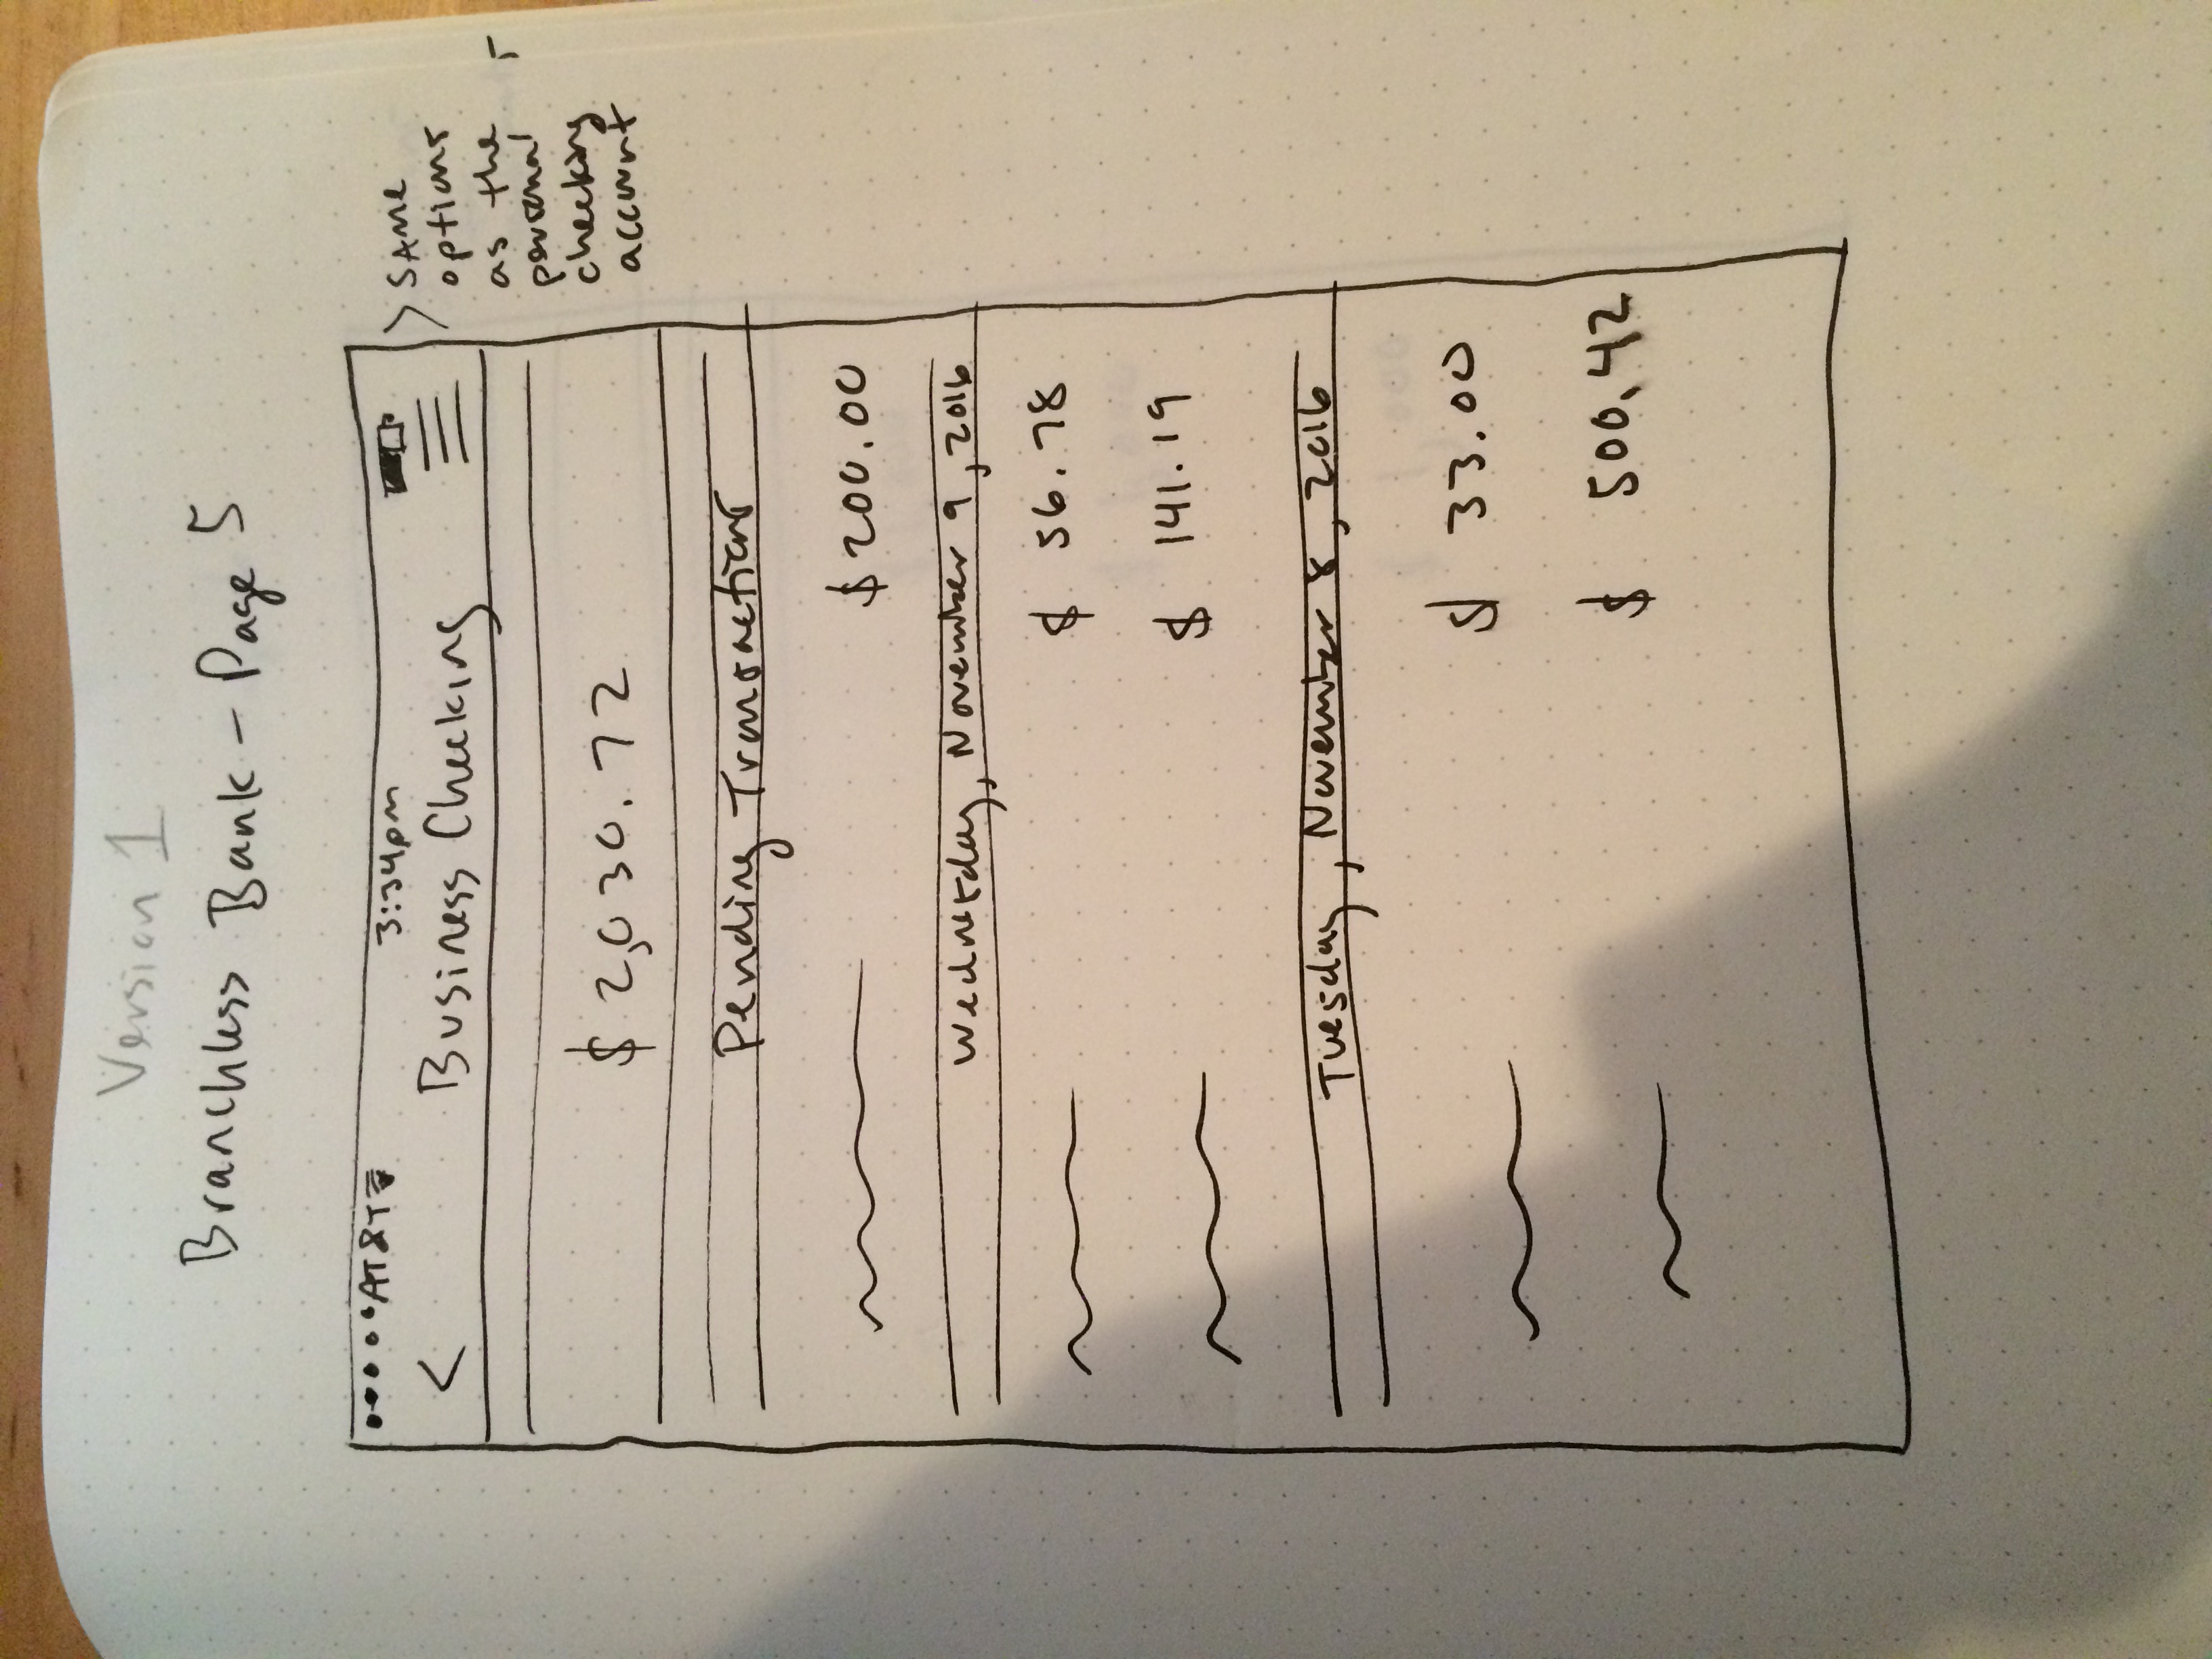 Version 1
Branchless Bank - Page 5
AT&T 3:34pm
< Business Checking
SAME
options
as the
personal
checking
account
$ 2,030.72
Pending Transactions
$200.00
Wednesday, November 9, 2016
$ 56.78
$ 141.19
Tuesday, November 8, 2016
$ 33.00
$ 500.42